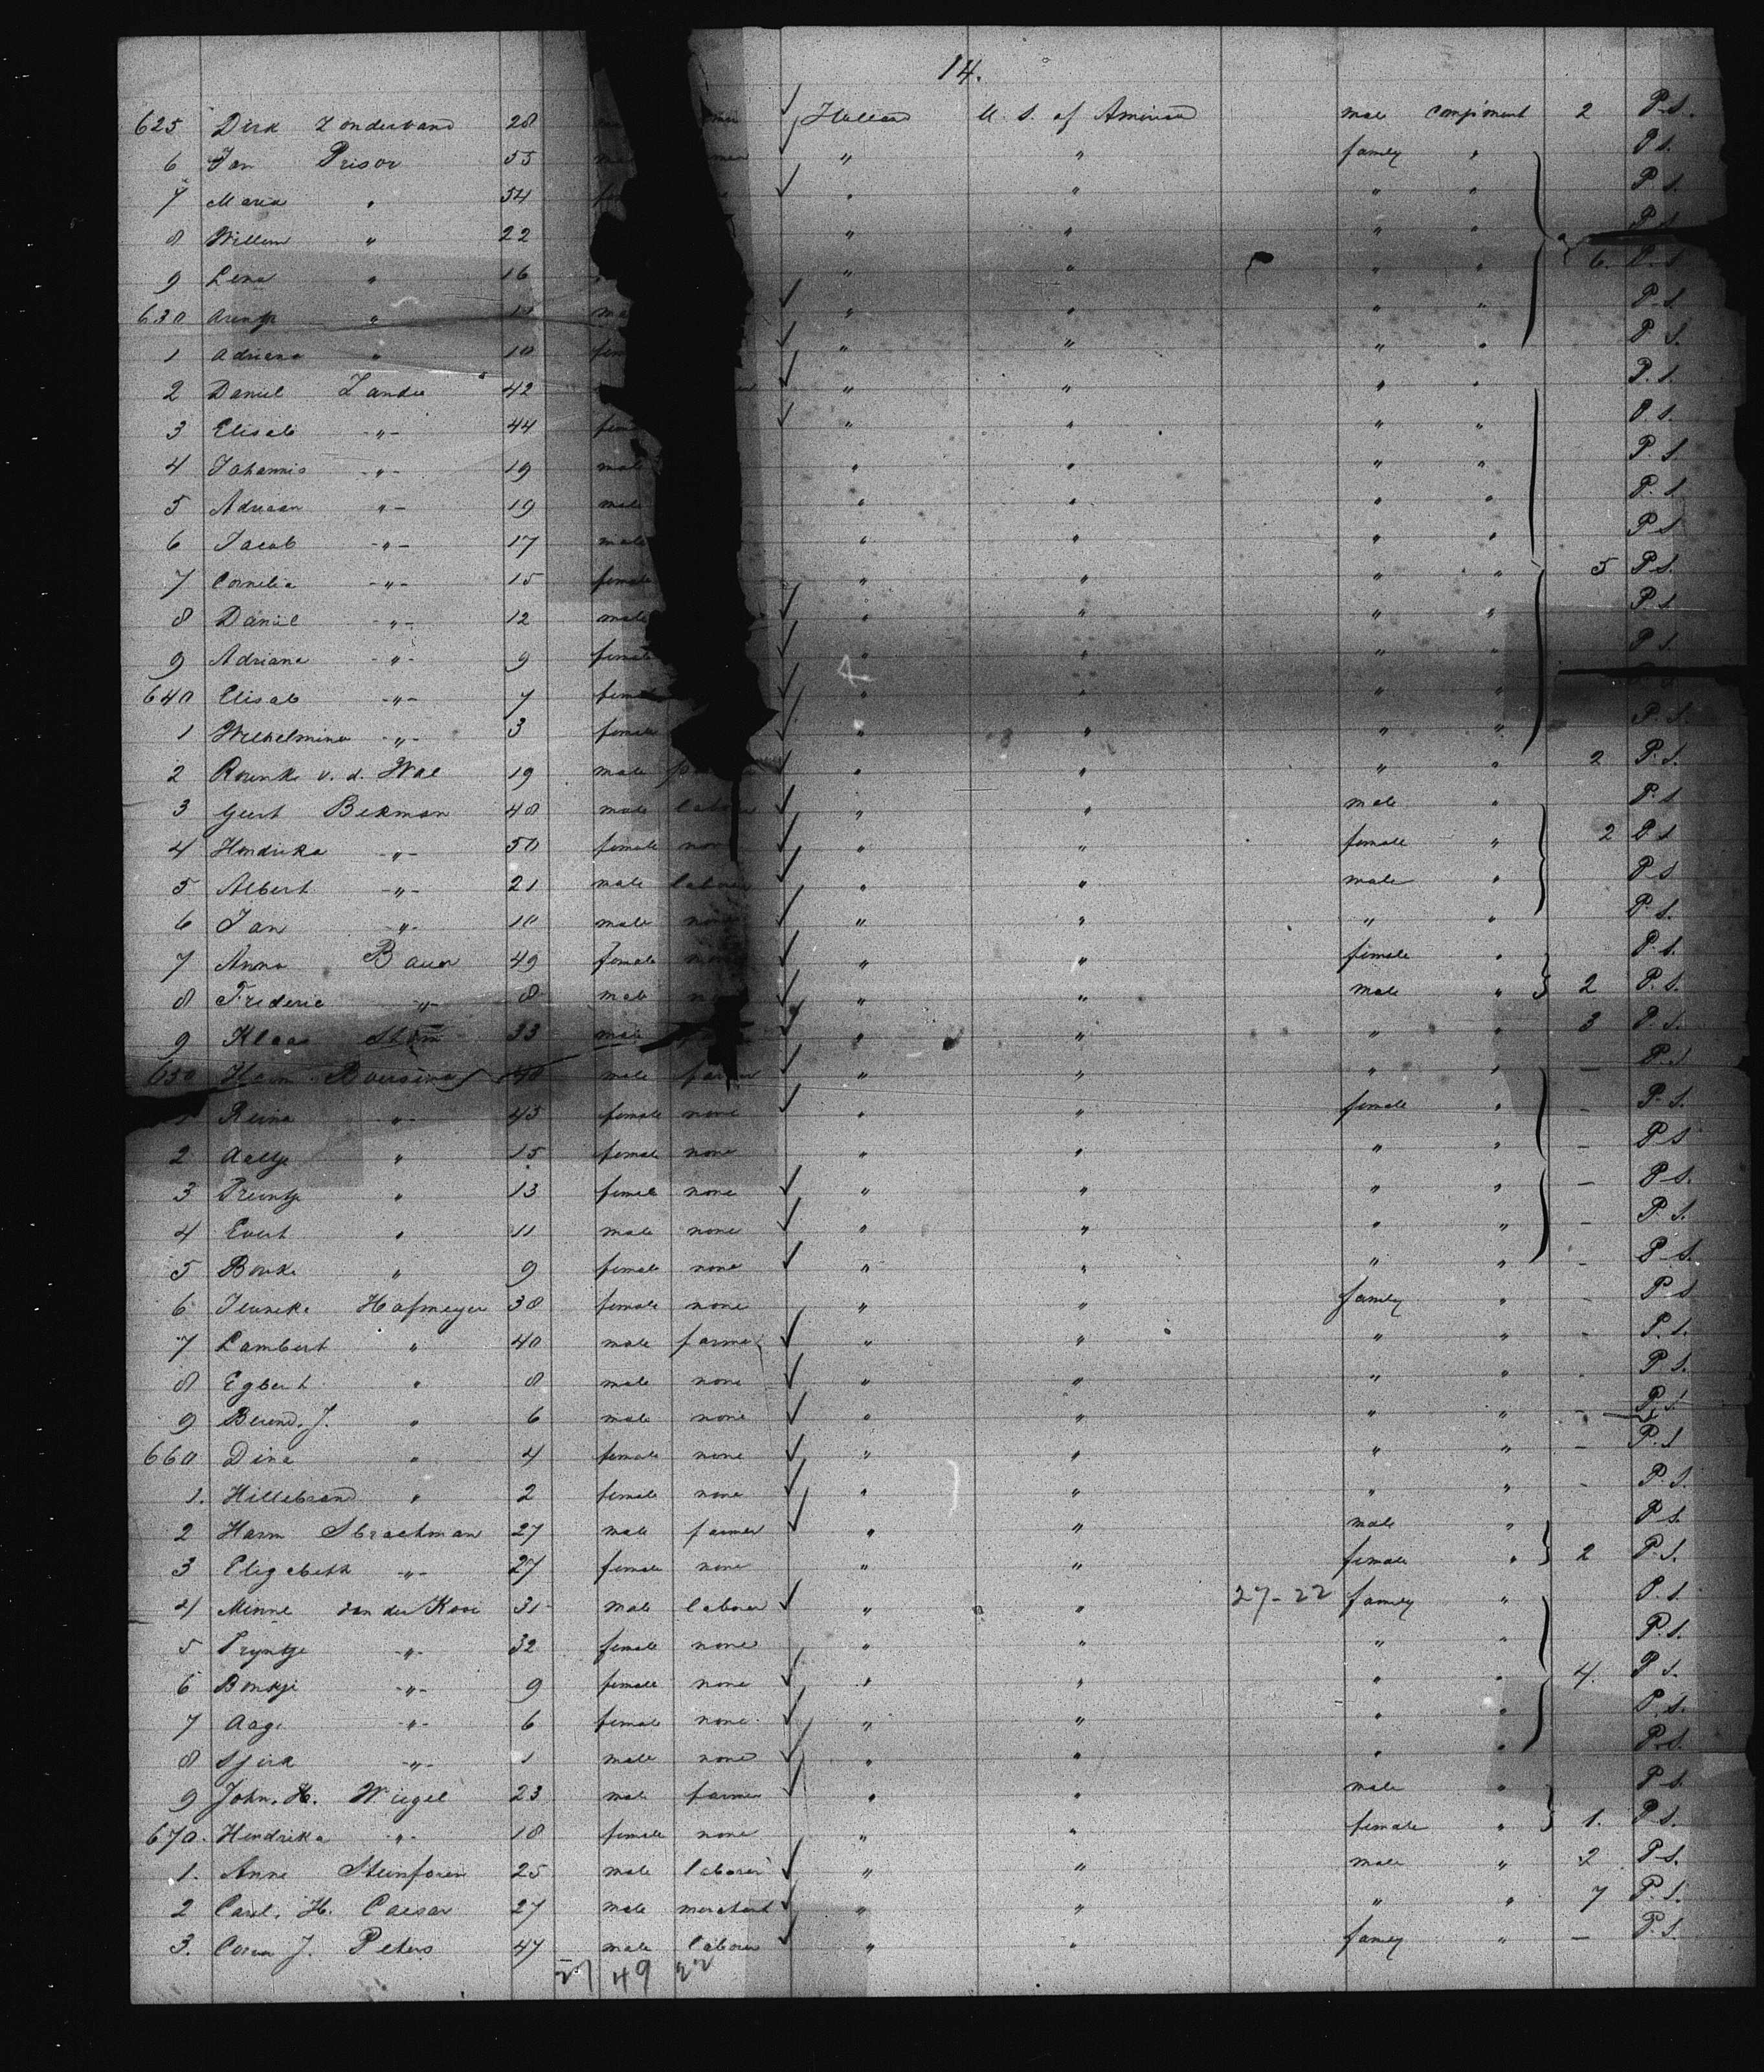 14.
625 Dirk Zondervand 28 Holland U. S. of America male Component 2 P.S.
6 Jan Prisor 55 " " family " P.S.
7 Maria " 54 " " " " P.S.
8 Willem " 22 " " " " P.S.
9 Lena " 16 " " " " 6. P.S.
630 " " " " " P.S.
1 Adriana " 10 " " " " P.S.
2 Daniel Zandee 42 " " " " P.S.
3 Elisab -"- 44 " " " " P.S.
4 Johannis -"- 19 male " " " " P.S.
5 Adriaan "- 19 male " " " " P.S.
6 Jacob -"- 17 male " " " " P.S.
7 Cornelia -"- 15 female " " " " 5 P.S.
8 Daniel -"- 12 male " " " " P.S.
9 Adriana -"- 9 female " " " " P.S.
640 Elisab -"- 7 " " " "
1 Wilhelmina -"- 3 female " " " " P.S.
2 v. d. Wal 19 male " " " " 2 P.S.
3 Geert Bekman 48 male laborer " " male " P.S.
4 Hendrika -"- 50 female none " " female " 2 P.S.
5 Albert -"- 21 male laborer " " male " P.S.
6 Jan -"- male none " " " " P.S.
7 Anna Bauer 49 female none " " female " P.S.
8 Frederic -"- 8 male " " male " 2 P.S.
9 Klaas 33 male " " " " 3 P.S.
650 Harm Boersma 40 male farmer " " " " — P.S.
1 Reina -"- 43 female none " " female " — P.S.
2 Aaltje " 15 female none " " " " — P.S.
3 Trientje " 13 female none " " " " — P.S.
4 Evert " 11 male none " " " " — P.S.
5 Bouke " 9 female none " " " " — P.S.
6 Hofmeyer 38 female none " " family " — P.S.
7 Lambert " 40 male farmer " " " " — P.S.
8 Egbert " 8 male none " " " " — P.S.
9 Berend. J. " 6 male none " " " " — P.S.
660 Dina " 4 female none " " " " — P.S.
1. Hillebrand " 2 female none " " " " — P.S.
2 Harm Strachman 27 male farmer " " male " P.S.
3 Elizabeth -"- 27 female none " " female " 2 P.S.
4 Minne van der Kooi 31 male laborer " " 27-22 family " P.S.
5 Tryntje -"- 32 female none " " " " P.S.
6 Bontje -"- 9 female none " " " " 4. P.S.
7 Aagi -"- 6 female none " " " " P.S.
8 Sjerk -"- 1 male none " " " " P.S.
9 John. H. Wiegel 23 male farmer " " male " P.S.
670. Hendrika -"- 18 female none " " female " 1. P.S.
1. Anne Steenforen 25 male laborer " " male " 2 P.S.
2 Carl. H. Caesar 27 male merchant " " " " 7 P.S.
3. J. Peters 47 male laborer " " family " — P.S.
27 49 22